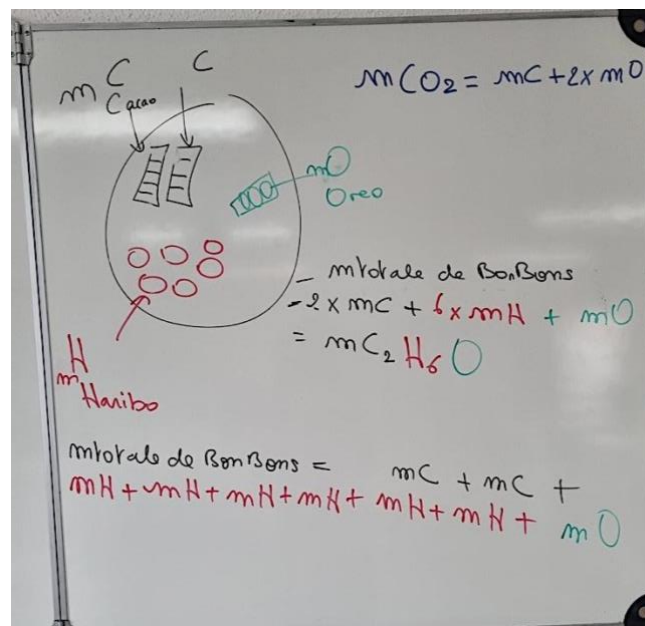 m C C
Cacao
mCO2 = mC+2x mO
mO
Oreo
H
m Haribo
_ mtotale de BonBons
-2 x mC + 6 x mH + mO
= mC2 H6 O
mtotale de BonBons = mC + mC +
mH + mH + mH + mH + mH + mH + mO